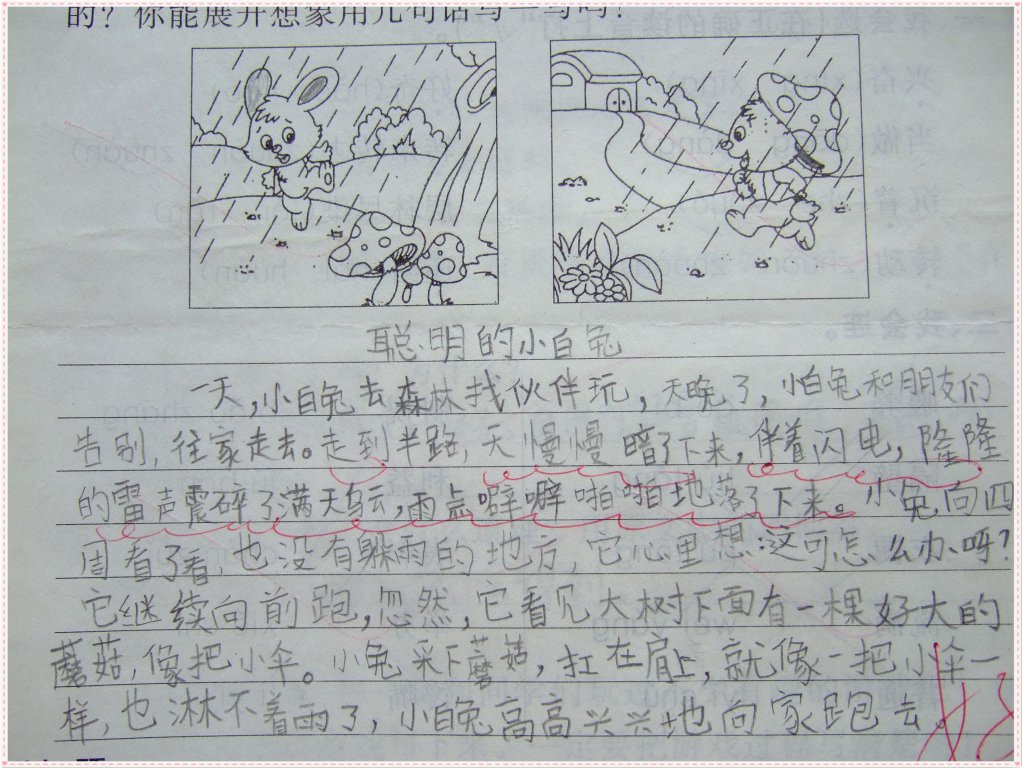 的？你能展开想象用几句话写一写吗？
聪明的小白兔
一天,小白兔去森林找伙伴玩,天晚了,小白兔和朋友们
告别,往家走去。走到半路,天慢慢暗了下来,伴着闪电,隆隆
的雷声震碎了满天乌云,雨点噼噼啪啪地落了下来。小兔向四
周看了看,也没有躲雨的地方,它心里想:这可怎么办呀?
它继续向前跑,忽然,它看见大树下面有一棵好大的
蘑菇,像把小伞。小兔采下蘑菇,扛在肩上,就像一把小伞一
样,也淋不着雨了,小白兔高高兴兴地向家跑去。
好